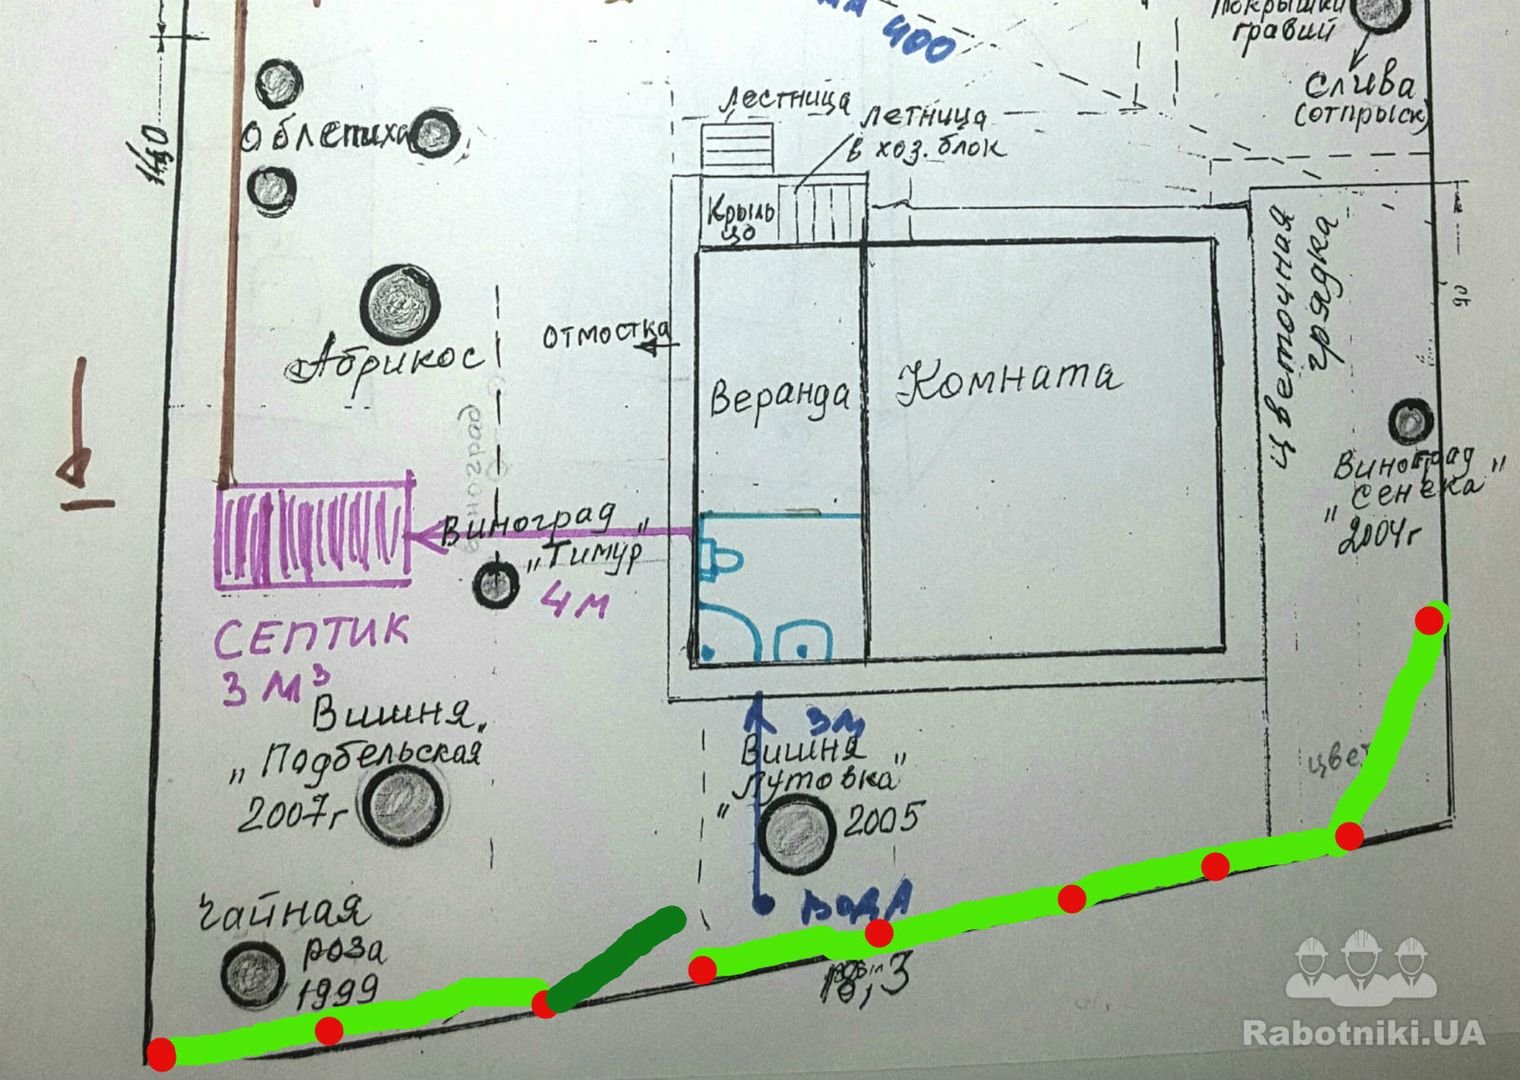 400
Покрышки
гравий
слива
(отпрыск)
лестница
летница
в хоз. блок
Облепиха
140
Крыль
цо
Цветочная
грядка
отмостка
Абрикос
Веранда
Комната
Виноград
"Сенека"
2004г
Виноград
"Тимур"
4м
СЕПТИК
3 м³
3м
Вишня
"Подбельская"
2007г
Вишня
"Лутовка"
2005
цвет
Чайная
роза
1999
вода
18,3
Rabotniki.UA